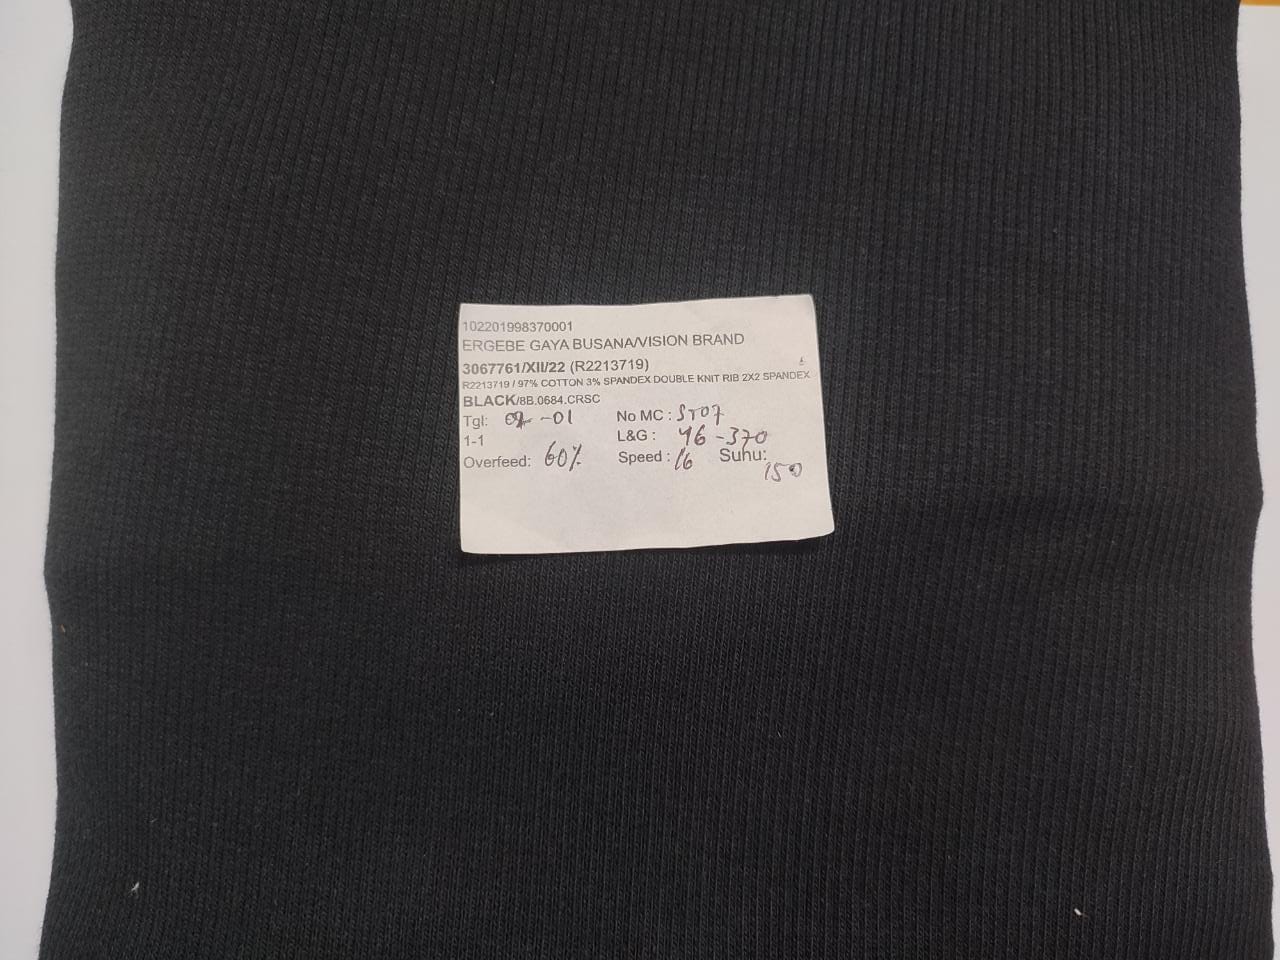 102201998370001
ERGEBE GAYA BUSANA/VISION BRAND
3067761/XII/22 (R2213719)
R2213719 / 97% COTTON 3% SPANDEX DOUBLE KNIT RIB 2X2 SPANDEX
BLACK/8B.0684.CRSC
Tgl: -01 No MC : ST07
1-1 L&G : 46-370
Overfeed: 60% Speed : 16 Suhu: 150